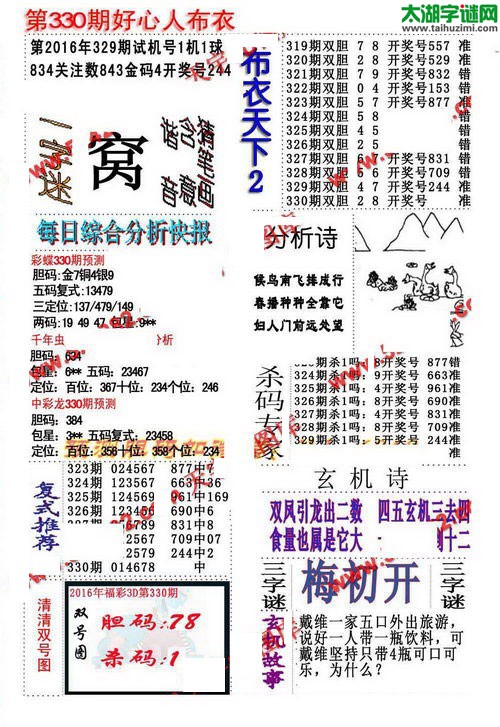 第330期好心人布衣
太湖字谜网
www.taihuzimi.com
第2016年329期试机号1机1球
834关注数843金码4开奖号244
窝
猜笔画
含意
谐音
每日综合分析快报
彩蝶330期预测
胆码:金7铜4银9
五码复式:13479
三定位:137/479/149
两码:19 49 47 包星:9**
千年虫
析
胆码:634
包星:6** 五码:23467
定位:百位:367十位:234个位:246
中彩龙330期预测
胆码:384
包星:3** 五码复式:23458
定位:百位:356十位:358个位:234
复式推荐
323期 024567 877中7
124期 123567 663中36
325期 124569 961中169
326期 01 690中6
6789 831中8
2567 709中07
2567 244中2
330期 014678 中
清清双号图
2016年福彩3D第330期
双号图
胆码:78
杀码:1
布衣天下2
319期双胆 7 8 开奖号557 准
320期双胆 2 8 开奖号529 准
321期双胆 7 9 开奖号832 错
322期双胆 0 4 开奖号153 错
323期双胆 5 7 开奖号877 准
324期双胆 5 8 错
325期双胆 4 5 错
326期双胆 2 5 错
327期双胆 6 开奖号831 错
328期双胆 5 6 开奖号709 错
329期双胆 4 7 开奖号244 准
330期双胆 开奖号 准
分析诗
候鸟南飞排成行
春播种种全靠它
妇人门前远失望
杀码专家
323期杀1吗:8开奖号 877错
324期杀1吗:9开奖号 663准
325期杀1吗:4开奖号 961准
326期杀1吗:8开奖号 690准
327期杀1吗:8开奖号 831错
328期杀1吗:3开奖号 709准
329期杀1吗:5开奖号 244准
玄机诗
双凤引龙出二数 四五玄机三去四
食量也属是它大 十二
三字谜
梅初开
三字谜
玄机故事
戴维一家五口外出旅游,
说好一人带一瓶饮料,可
戴维坚持只带4瓶可口可
乐,为什么?